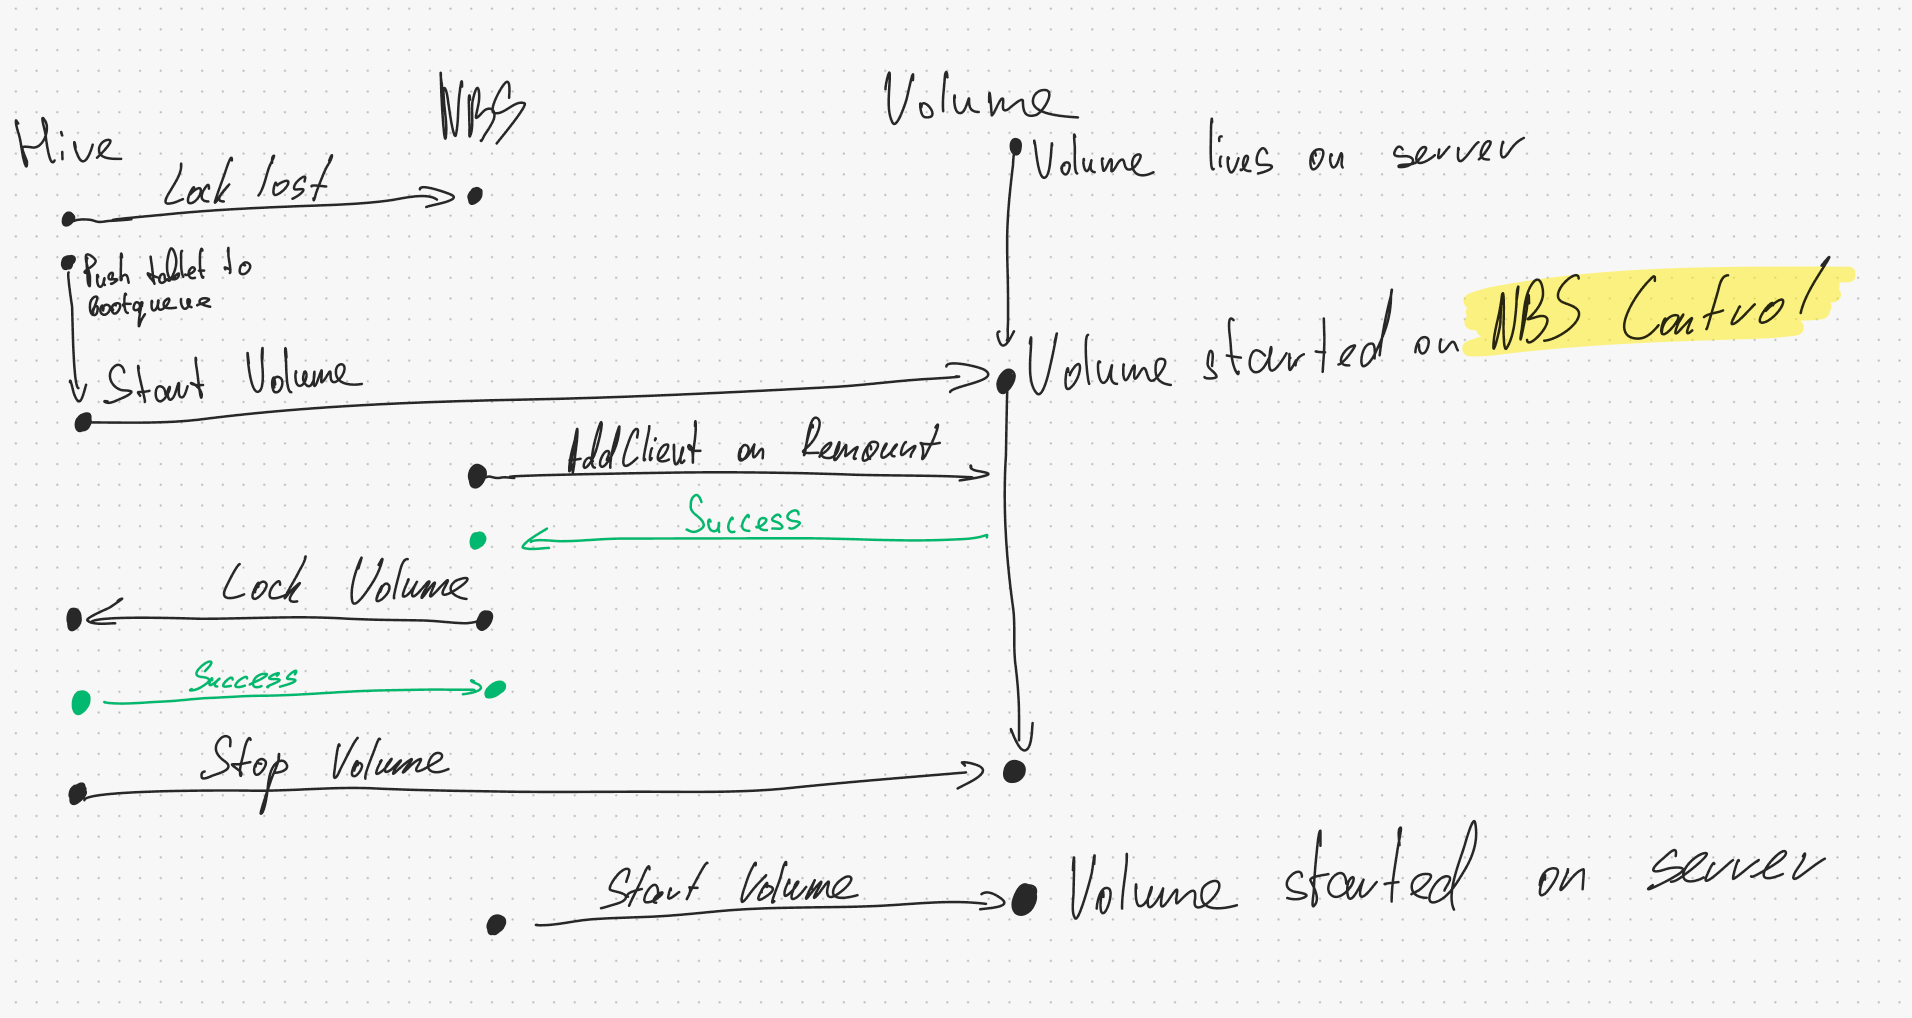 Hive
NBS
Volume
Lock lost
Volume lives on server
Push tablet to
bootqueue
Start Volume
Volume started on NBS Control
AddClient on Remount
Success
Lock Volume
Success
Stop Volume
Start Volume
Volume started on server